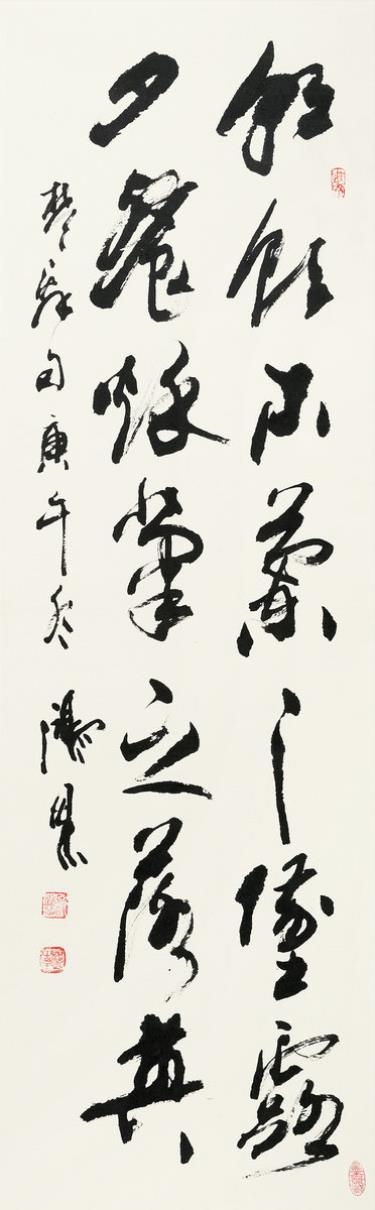 朝飲木蘭之墜露
夕餐秋菊之落英
楚辞句庚午冬